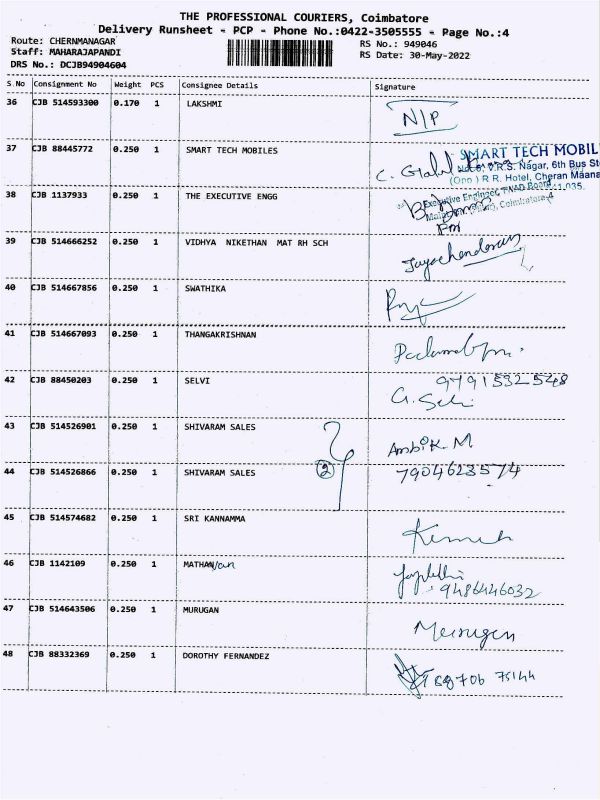 THE PROFESSIONAL COURIERS, Coimbatore
Delivery Runsheet - PCP - Phone No.:0422-3505555 - Page No.:4
Route: CHERNMANAGAR RS No.: 949046
Staff: MAHARAJAPANDI RS Date: 30-May-2022
DRS No.: DCJB94904604
S.No Consignment No Weight PCS Consignee Details Signature
36 CJB 514593300 0.170 1 LAKSHMI N/P
37 CJB 88445772 0.250 1 SMART TECH MOBILES
SMART TECH MOBIL
V.R.S. Nagar, 6th Bus St
(Opp.) R.R. Hotel, Cheran Maana
38 CJB 1137933 0.250 1 THE EXECUTIVE ENGG
Executive Engineer, TNAD Board
Coimbatore-4
39 CJB 514666252 0.250 1 VIDHYA NIKETHAN MAT RH SCH
Jayachandran
40 CJB 514667856 0.250 1 SWATHIKA
41 CJB 514667093 0.250 1 THANGAKRISHNAN
42 CJB 88450203 0.250 1 SELVI 9791532548
G. Selvi
43 CJB 514526901 0.250 1 SHIVARAM SALES
Ambik. M
44 CJB 514526866 0.250 1 SHIVARAM SALES 2 7904623574
45 CJB 514574682 0.250 1 SRI KANNAMMA
46 CJB 1142109 0.250 1 MATHAN/an
9486446032
47 CJB 514643506 0.250 1 MURUGAN
Murugan
48 CJB 88332369 0.250 1 DOROTHY FERNANDEZ